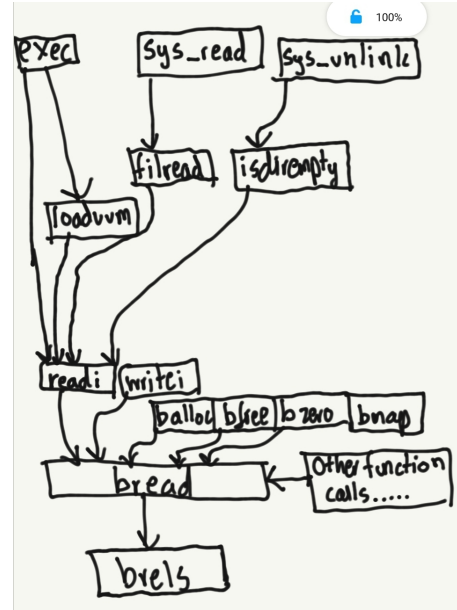 100%
exec
sys_read
sys_unlink
filread
isdirempty
loaduvm
readi
writei
balloc
bfree
bzero
bmap
bread
Other function
calls.....
brels